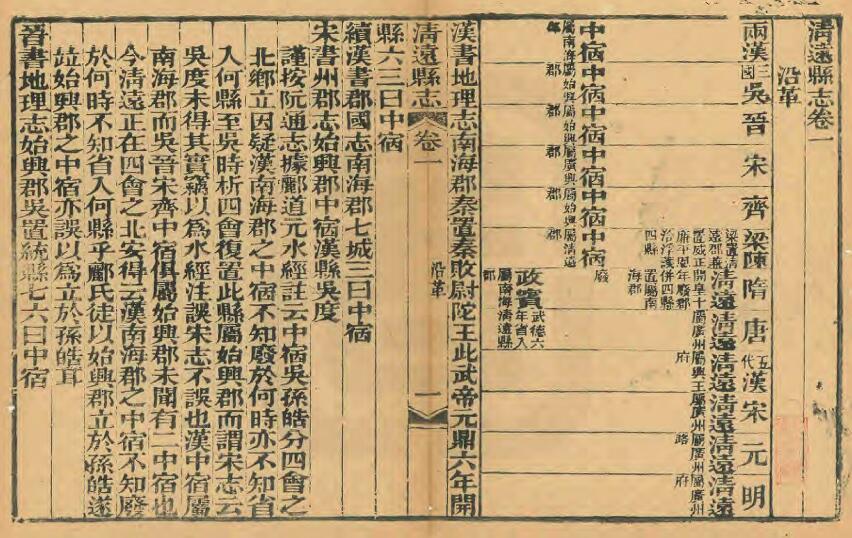 清遠縣志卷一
沿革
兩漢 三國吳 晉 宋 齊 梁陳 隋 唐 五代漢 宋 元 明
中宿 屬南海郡
中宿 屬始興郡
中宿 屬始興郡
中宿 屬廣興郡
中宿 屬始興郡
中宿 屬清遠郡
廢
清遠 開皇十年廢郡併四縣置屬南海郡
清遠 屬廣州
清遠 屬興王府
清遠 屬廣州
清遠 屬廣州路
清遠 屬廣州府
政賓 屬南海郡
武德六年省入清遠縣
漢書地理志南海郡秦置秦敗尉陀王此武帝元鼎六年開
清遠縣志 卷一 沿革 一
縣六三曰中宿
續漢書郡國志南海郡七城三曰中宿
宋書州郡志始興郡中宿漢縣吳度
謹按阮通志據酈道元水經註云中宿吳孫皓分四會之
北鄉立因疑漢南海郡之中宿不知廢於何時亦不知省
入何縣至吳時析四會復置此縣屬始興郡而謂宋志云
吳度未得其實竊以為水經注誤宋志不誤也漢中宿屬
南海郡而吳晉宋齊中宿俱屬始興郡未聞有二中宿也
今清遠正在四會之北安得云漢南海郡之中宿不知廢
於何時不知省入何縣乎酈氏徒以始興郡立於孫皓遂
竝始興郡之中宿亦誤以為立於孫皓耳
晉書地理志始興郡吳置統縣七六曰中宿